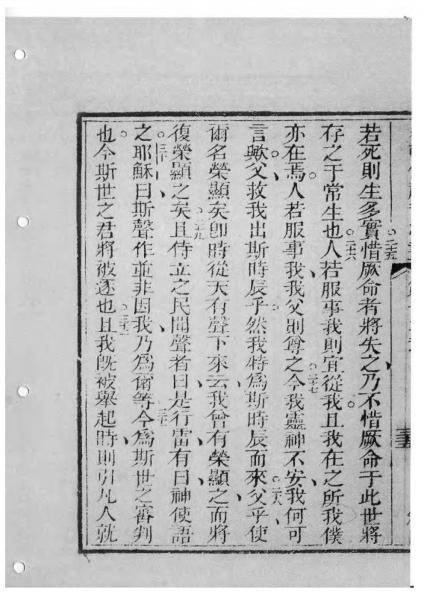 若死則生多實惜厥命者將失之乃不惜厥命于此世將
存之于常生也人若服事我則宜從我且我在之所我僕
亦在焉人若服事我我父則尊之今我靈神不安我何可
言歟父救我出斯時辰乎然我特為斯時辰而來父乎使
爾名榮顯矣即時從天有聲下來云我曾有榮顯之而將
復榮顯之矣且侍立之民聞聲者曰是行雷有曰神使語
之耶穌曰斯聲作並非因我乃為爾等今為斯世之審判
也今斯世之君將被逐也且我既被舉起時則引凡人就
二五
二六
二七
二八
二九
三十
三一
三二